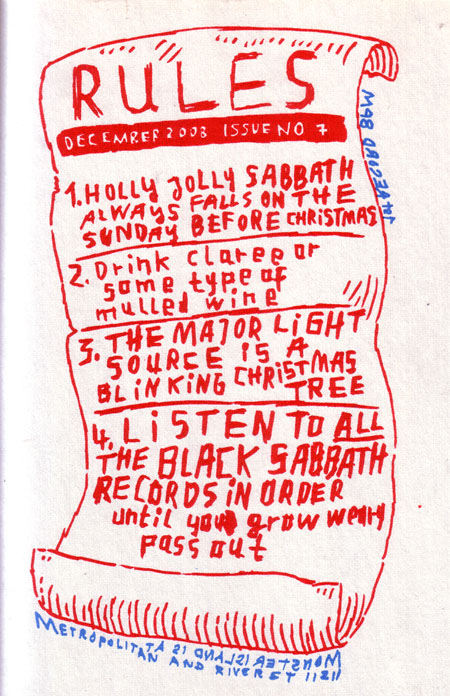 RULES
DECEMBER 2003 ISSUE NO 7
1. HOLLY JOLLY SABBATH
ALWAYS FALLS ON THE
SUNDAY BEFORE CHRISTMAS
2. Drink claree or
some type of
mulled wine
3. THE MAJOR LIGHT
SOURCE IS A
BLINKING CHRISTMAS
TREE
4. LISTEN TO ALL
THE BLACK SABBATH
RECORDS IN ORDER
until you grow weary
pass out
MONSTER ISLAND IS AT METROPOLIT
AN AND RIVER ST 11211